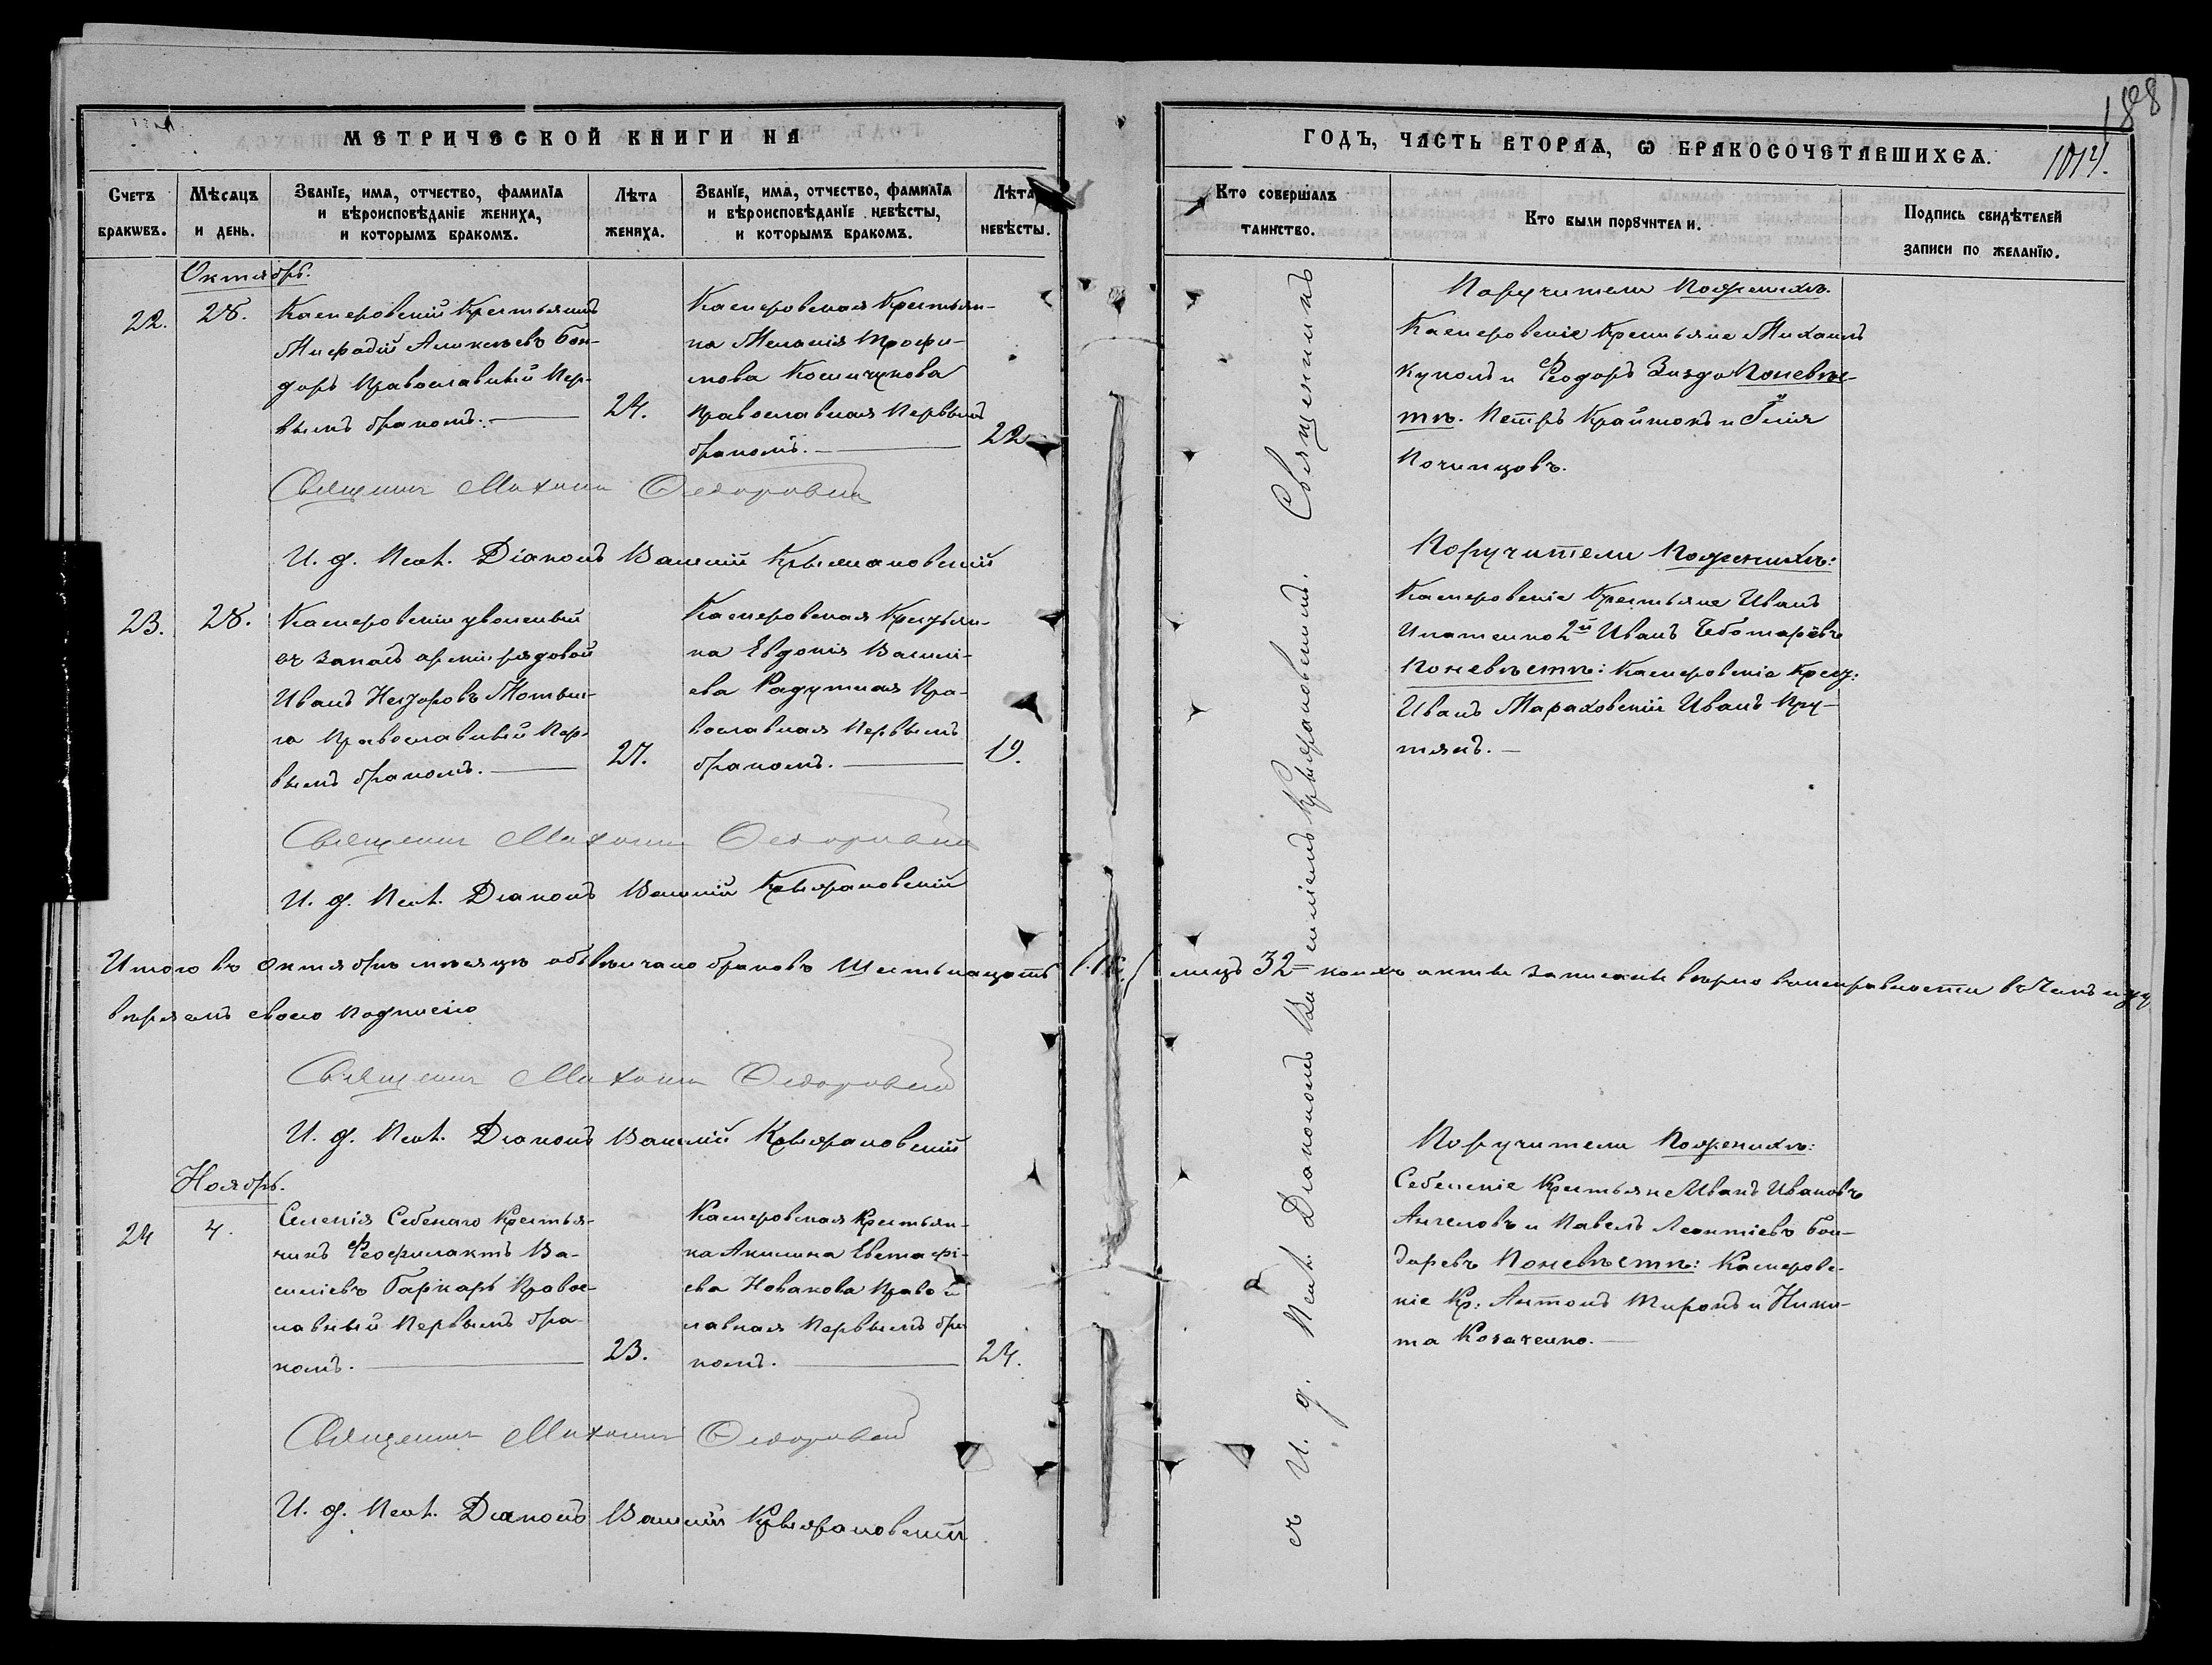 188
1014.
МЕТРИЧЕСКОЙ КНИГИ НА
ГОДЪ, ЧАСТЬ ВТОРАЯ, Ѡ БРАКОСОЧЕТАВШИХСЯ.
Счетъ браковъ.
Мѣсяцъ и день.
Званїе, имя, отчество, фамилїя
и вѣроисповѣданїе жениха,
и которымъ бракомъ.
Лѣта
жениха.
Званїе, имя, отчество, фамилїя
и вѣроисповѣданїе невѣсты,
и которымъ бракомъ.
Лѣта
невѣсты.
Кто совершалъ
таинство.
Кто были порꙋчители.
Подпись свидѣтелей
записи по желанїю.
Октябрь.
22.
28.
Касперовскій Крестьянинъ
Алексѣевъ Бон-
дарь Православный Пер-
вымъ бракомъ.
24.
Касперовская Крестьян-
ка Меланія Трофи-
мова
Православная Первымъ
бракомъ.
22
Поручители Поженихѣ.
Касперовскіе Крестьяне Михаилъ
и Ѳеодоръ Поневѣс-
тѣ. Петръ и Илія
Священникъ Михаилъ Ѳедоровскій
И. д. Псал. Діаконъ Василій Крыжановскій
23.
28.
Касперовскій уволенный
въ запасъ арміи рядовой
Иванъ
Православный Пер-
вымъ бракомъ.
27.
Касперовская Крестьян-
ка Евдокія Василі-
ева Пра-
вославная Первымъ
бракомъ.
19.
Поручители Поженихѣ:
Касперовскіе Крестьяне Иванъ
Игнатенко 2й Иванъ Чеботарёвъ
Поневѣстѣ: Касперовскіе Крест:
Иванъ Мараховскій Иванъ Пру-
тянъ.
Священникъ Михаилъ Ѳедоровскій
И. д. Псал. Діаконъ Василій Крыжановскій
Итого въ Октябрѣ мѣсяцѣ обвѣнчано браковъ Шестьнадцать (16) лицъ 32 коихъ акты записаны вѣрно
своею подписью
Священникъ Михаилъ Ѳедоровскій
И. д. Псал. Діаконъ Василій Крыжановскій
Ноябрь.
24
4.
Селенія Себенаго Крестья-
нинъ Ѳеофилактъ Ва-
силіевъ Гаркарь Правос-
лавный Первымъ бра-
комъ.
23.
Касперовская Крестьян-
ка Акилина Евстафі-
ева Новакова Правос-
лавная Первымъ бра-
комъ.
24.
Поручители Поженихѣ:
Себенскіе Крестьяне Иванъ Ивановъ
Ангеловъ и Павелъ Леонтіевъ Бон-
даревъ Поневѣстѣ: Касперовс-
кіе Кр: Антонъ Миронъ и Ники-
та Козаченко.
Священникъ Михаилъ Ѳедоровскій
И. д. Псал. Діаконъ Василій Крыжановскій
Священникъ
съ И. д. Псал. Діакономъ Василіемъ Крыжановскимъ.